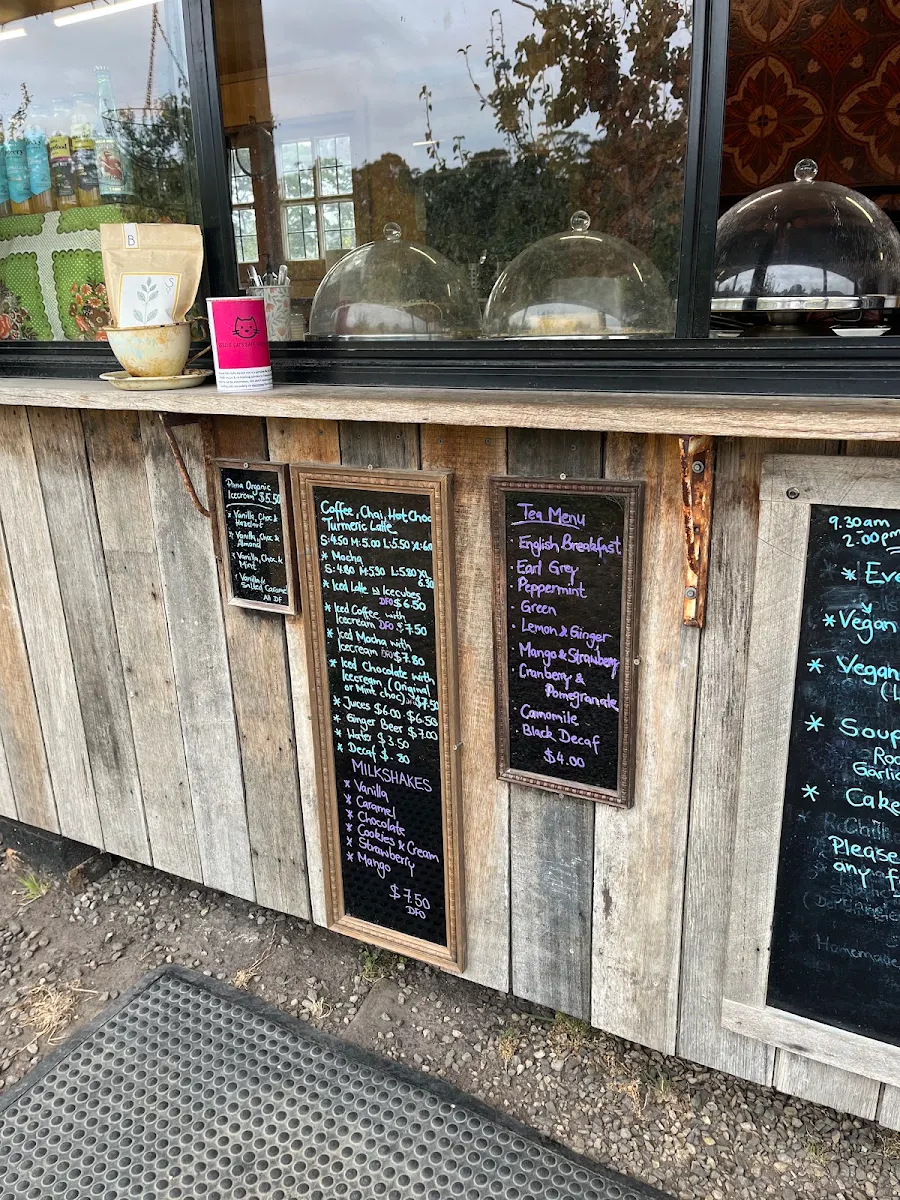 B
Pana Organic
Icecream $5.50
* Vanilla, Choc &
Hazelnut
* Vanilla, Choc &
Almond
* Vanilla, Choc &
Mint
* Vanilla &
Salted Caramel
All DF
Coffee, Chai, Hot Choc
Turmeric Latte
S:4.50 M:5.00 L:5.50
* Mocha
S: 4.80 M:5.30 L:5.80 XL
6.30
* Iced Latte w Icecubes
DFO $6.50
* Iced Coffee with
Icecream DFO $7.50
* Iced Mocha with
Icecream DFO $7.80
* Iced Chocolate with
Icecream, (Original
or Mint choc) $7.50
* Juices $6.00 - $6.50
* Ginger Beer $7.00
* Water $3.50
* Decaf $.80
MILKSHAKES
* Vanilla
* Caramel
* Chocolate
* Cookies & Cream
* Strawberry
* Mango
$7.50
DFO
Tea Menu
· English Breakfast
· Earl Grey
Peppermint
· Green
· Lemon & Ginger
Mango & Strawberry
Cranberry &
Pomegranate
Camomile
Black Decaf
$4.00
9.30am
2.00pm
* Eve
* Vegan
* Vegan
* Soup
Garlic
* Cake
Please
any f
Homemade